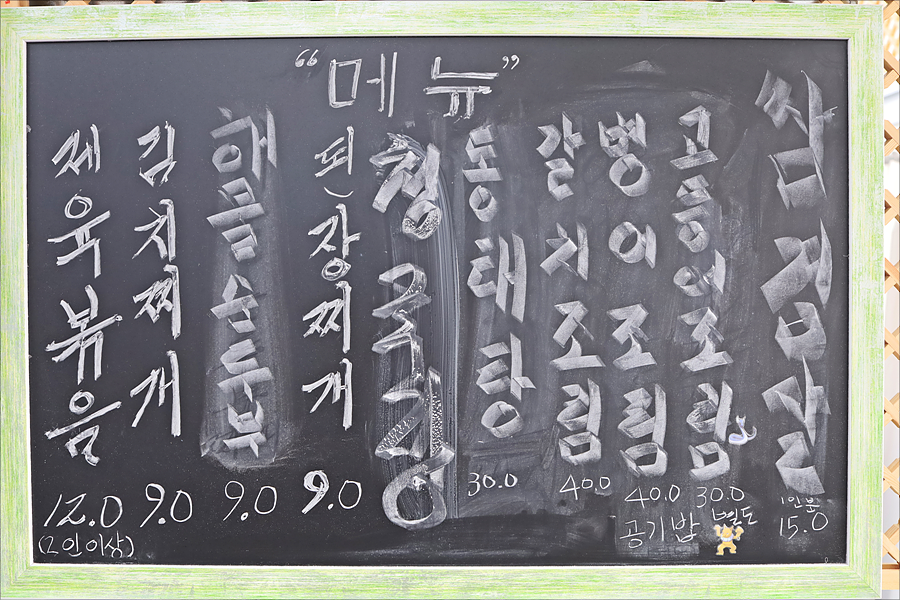 “메뉴”
제육볶음
12.0
(2인이상)
김치찌개
9.0
해물순두부
9.0
된장찌개
9.0
청국장
동태탕
30.0
갈치조림
40.0
병어조림
40.0
고등어조림
30.0
공기밥 별도
삼겹살
1인분
15.0